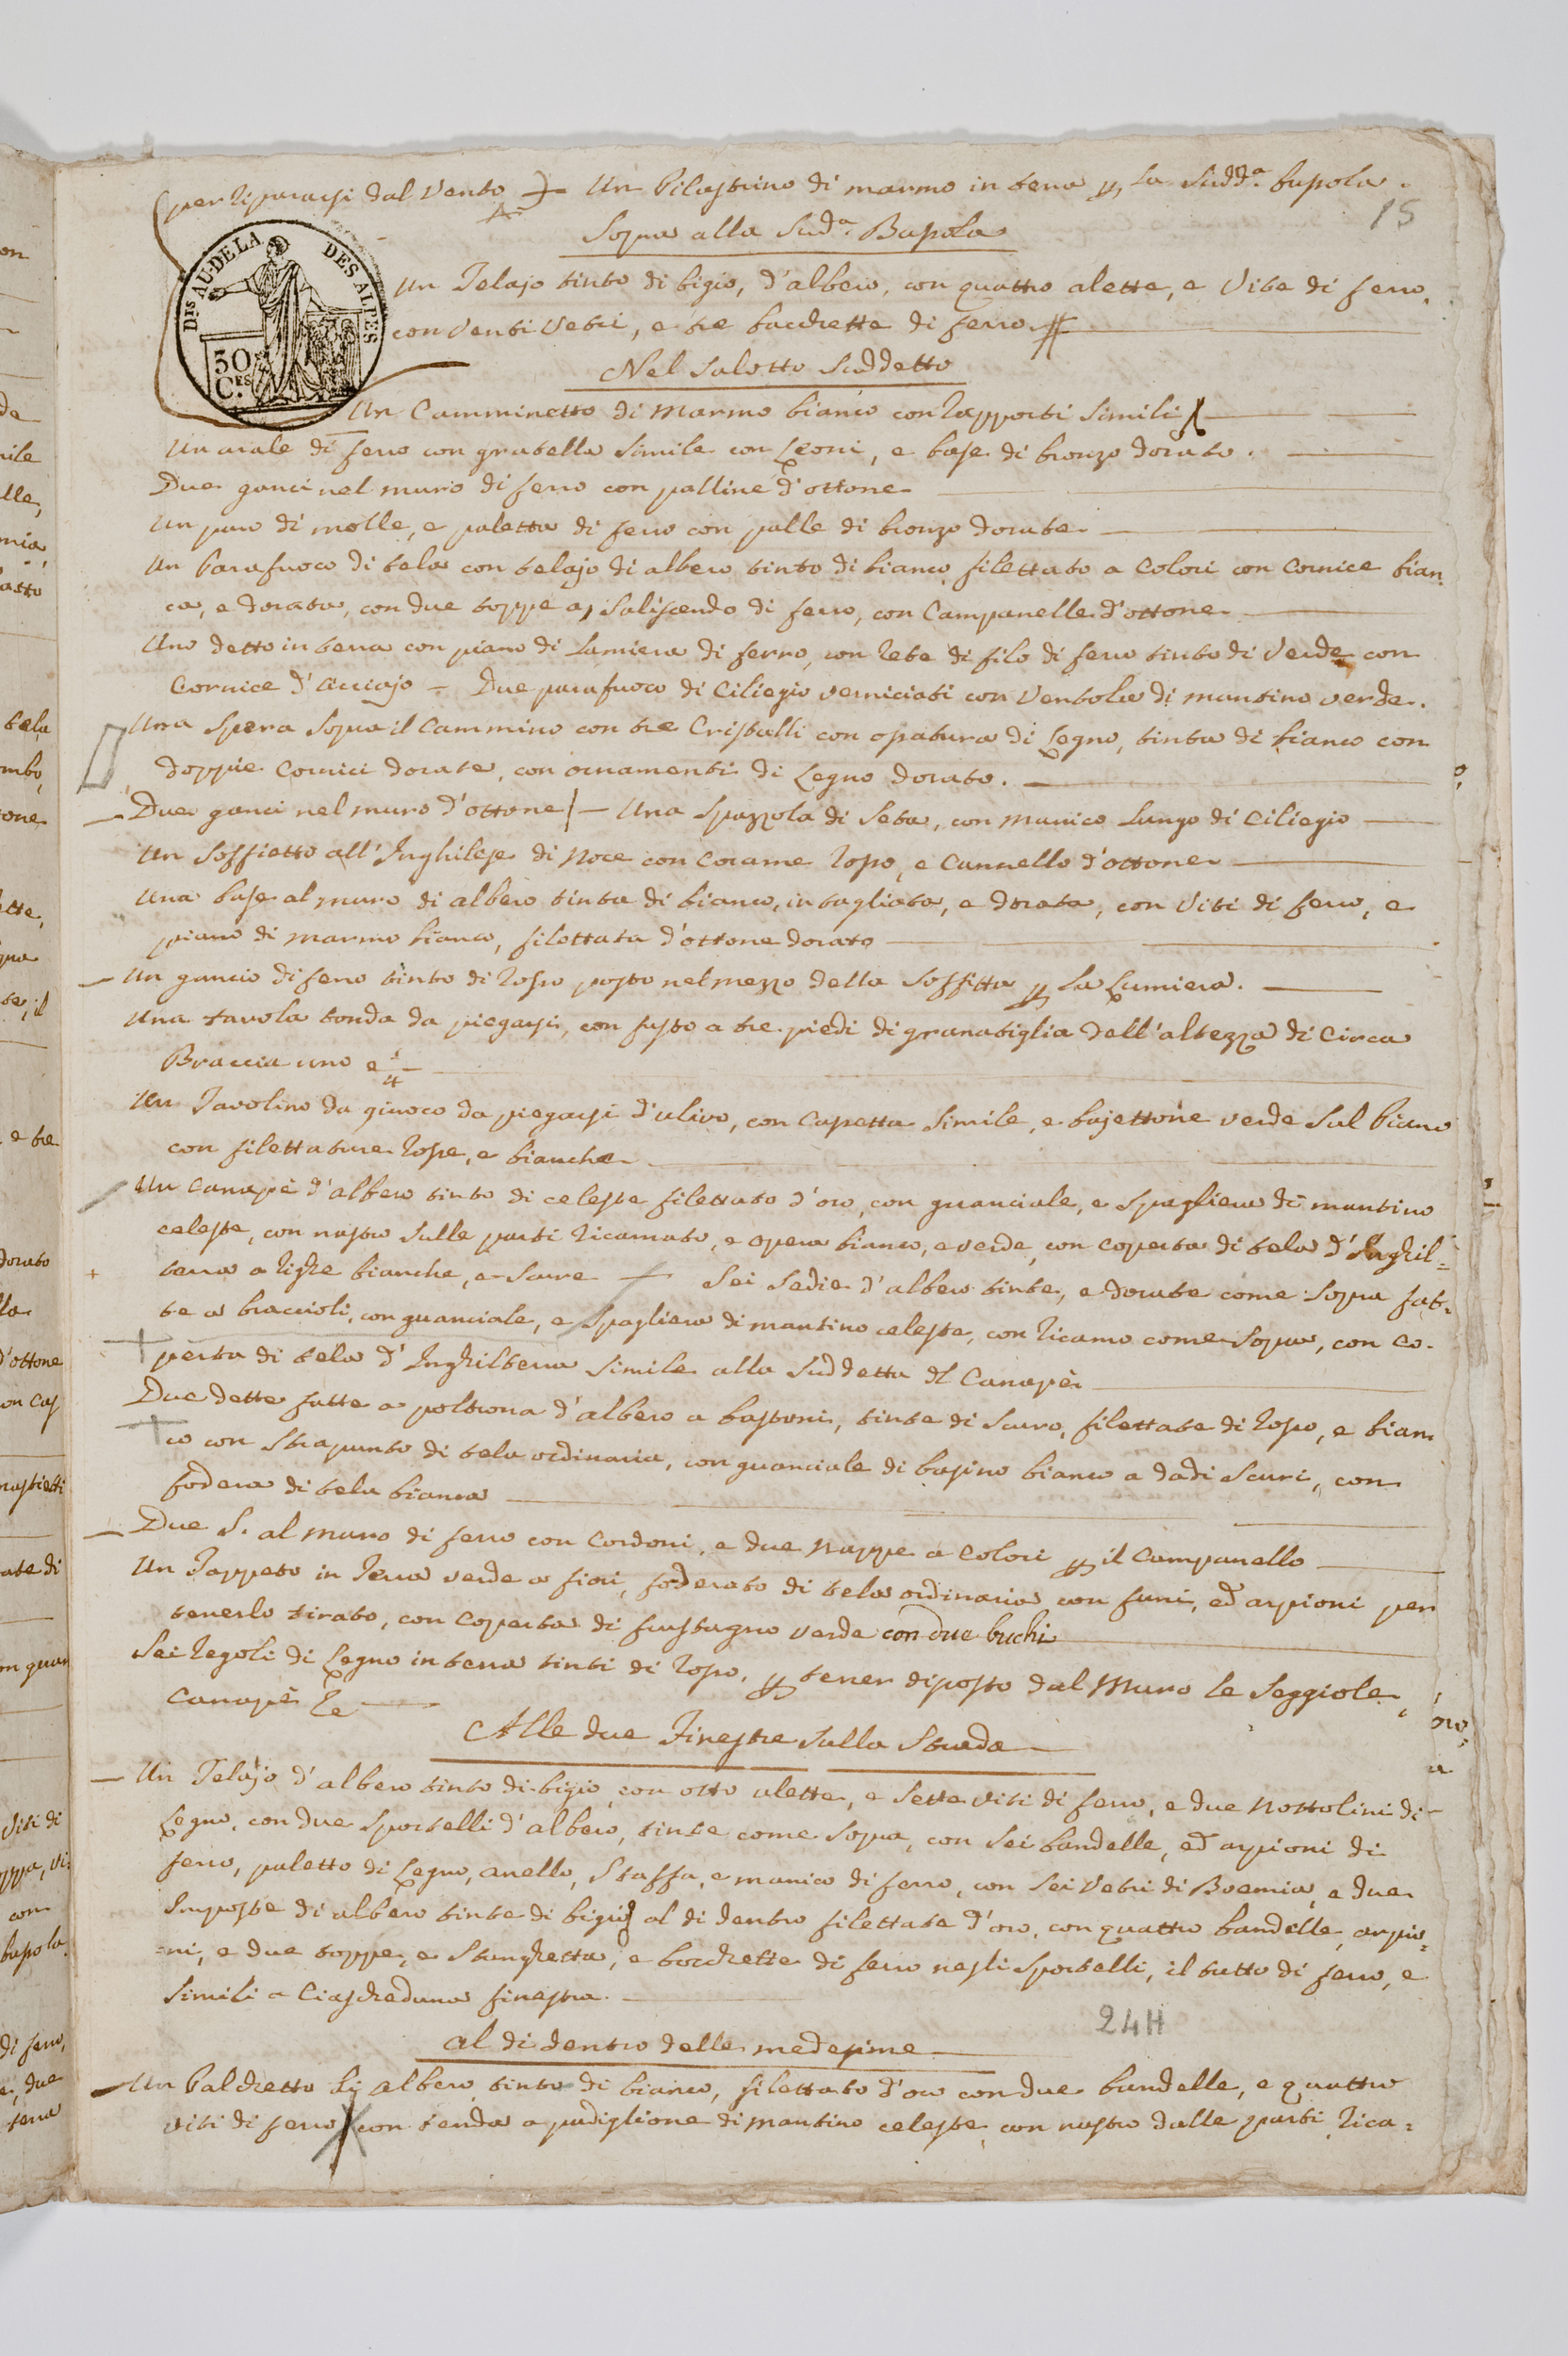 per riparassi dal vento — Un Pilastrino di marmo in terra p. la sudd.a bussola.
15
Sopra alla sud.a Bussola
DIS AU-DE LA DES ALPES
50 CES
Un Telajo tinto di bigio, d'albero, con quattro alette, e Vite di ferro,
con venti vetri, e tre bacchette di ferro
Nel salotto suddetto
Un Camminetto di Marmo bianco con rapporti simili
Un arale di ferro con gratella simile con Leoni, e base di bronzo dorato.
Due ganci nel muro di ferro con palline d'ottone
Un paro di molle, e paletta di ferro con palle di bronzo dorate
Un Parafuoco di tela con telajo di albero tinto di bianco filettato a Colori con Cornice bian
ca, e dorata, con due toppe a saliscendo di ferro, con Campanelle d'ottone
Uno detto in terra con piano di Lamiera di ferro, con rete di filo di ferro tinto di Verde con
Cornice d'acciajo — Due parafuoco di Ciliegio verniciati con Ventola di mantino verde.
Una Spera sopra il Cammino con tre Cristalli con ossatura di Legno, tinta di bianco con
doppie Cornici dorate, con ornamenti di Legno dorato.
Due ganci nel muro d'ottone — Una Spazzola di Seta, con manico Lungo di Ciliegio
Un soffietto all'Inghilese di Noce con Corame rosso, e Cannello d'ottone
Una base al muro di albero tinta di bianco, intagliata, e dorata, con Viti di ferro, e
piano di Marmo bianco, filettata d'ottone dorato
Un gancio di ferro tinto di rosso posto nel mezzo della Soffitta p. La Lumiera.
Una tavola tonda da piegarsi, con fusto a tre piedi di granatiglia dell'altezza di Circa
Braccia uno e 1/4
Un Tavolino da giuoco da piegarsi d'ulivo, con Cassetta simile, e bajettone verde sul Piano
con filettature rosse, e bianche
Un Canapè d'albero tinto di celeste filettato d'oro, con guanciale, e spagliera di mantino
celeste, con nastro sulle parti ricamato, e opera bianco, e verde, con coperta di tela d'Inghil=
terra a righe bianche, e scure — Sei Sedie d'albero tinte, e dorate come sopra fat-
te a braccioli, con guanciale, e spagliera di mantino celeste, con ricamo come sopra, con co-
perta di tela d'Inghilterra simile alla suddetta del Canapè
Due dette fatte a poltrona d'albero a bastoni, tinte di scuro, filettate di rosso, e bian
co con strapunto di tela ordinaria, con guanciale di basino bianco a dadi scuri, con
fodera di tela bianca
Due S. al muro di ferro con Cordoni, e due Nappe a Colori p. il Campanello
Un Tappeto in Terra verde a fiori, foderato di tela ordinaria con funi, ed arpioni per
tenerlo tirato, con coperta di frustagno verde con due buchi
Sei regoli di Legno in terra tinti di rosso, p. tener disposto dal Muro le Seggiole,
Canapè &c
Alle due Finestre sulla Strada
Un Telajo d'albero tinto di bigio, con otto alette, e sette viti di ferro, e due Nottolini di
Legno, con due sportelli d'albero, tinte come sopra, con sei bandelle, ed arpioni di
ferro, paletto di Legno, anello, Staffa, e manico di ferro, con sei Vetri di Boemia, e due
Imposte di albero tinte di bigio al di dentro filettate d'oro, con quattro bandelle, arpio=
=ni, e due toppe, e Stanghetta, e bocchette di ferro negli sportelli, il tutto di ferro, e
simili a Ciascheduna finestra.
24H
al di dentro delle medesime
Un Palchetto di albero, tinto di bianco, filettato d'oro con due bandelle, e quattro
viti di ferro con tenda a padiglione di mantino celeste, con nastro dalle parti rica=